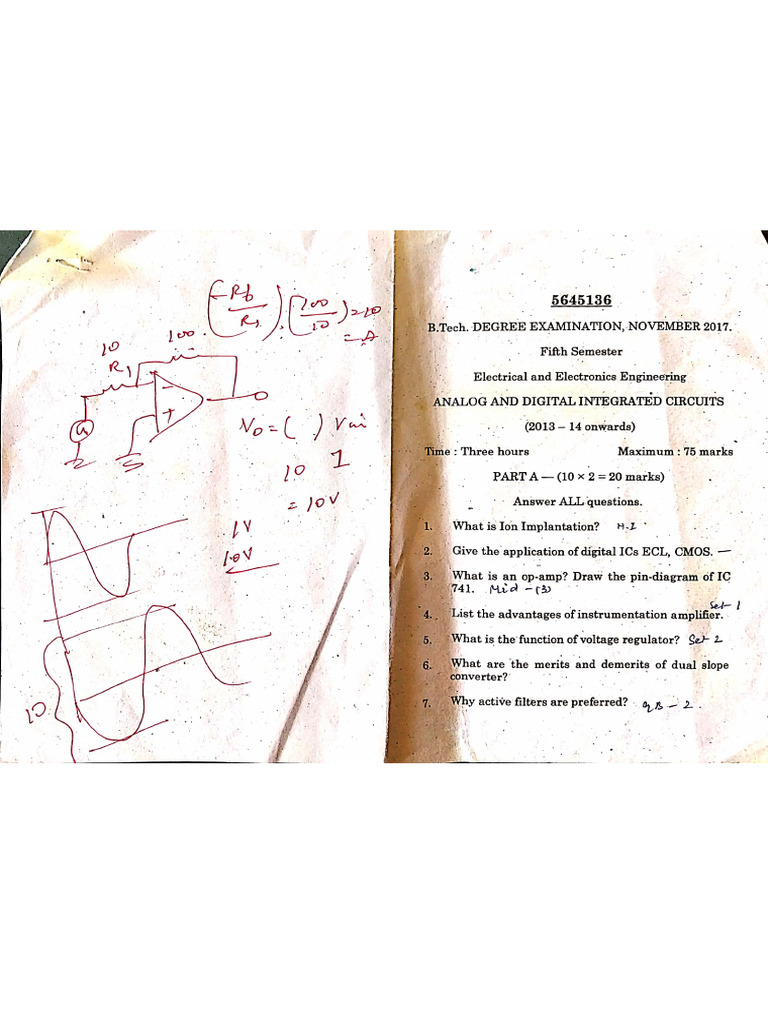 (-Rf/R1) · (100/10) = 10
= A
100
10
R1
-
+
Vo = ( ) Vin
10 1
= 10V
1V
10V
10
5645136
B.Tech. DEGREE EXAMINATION, NOVEMBER 2017.
Fifth Semester
Electrical and Electronics Engineering
ANALOG AND DIGITAL INTEGRATED CIRCUITS
(2013 – 14 onwards)
Time : Three hours Maximum : 75 marks
PART A — (10 × 2 = 20 marks)
Answer ALL questions.
1. What is Ion Implantation?
2. Give the application of digital ICs ECL, CMOS. —
3. What is an op-amp? Draw the pin-diagram of IC
741. Mid - (3)
4. List the advantages of instrumentation amplifier. Set 1
5. What is the function of voltage regulator? Set 2
6. What are the merits and demerits of dual slope
converter?
7. Why active filters are preferred? QB - 2.